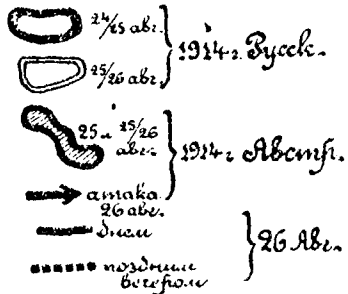 24/25 авг.
25/26 авг.
1914 г. Русск.
25 и 25/26
авг.
1914 г. Австр.
атака
26 авг.
днем
поздним
вечером
26 Авг.